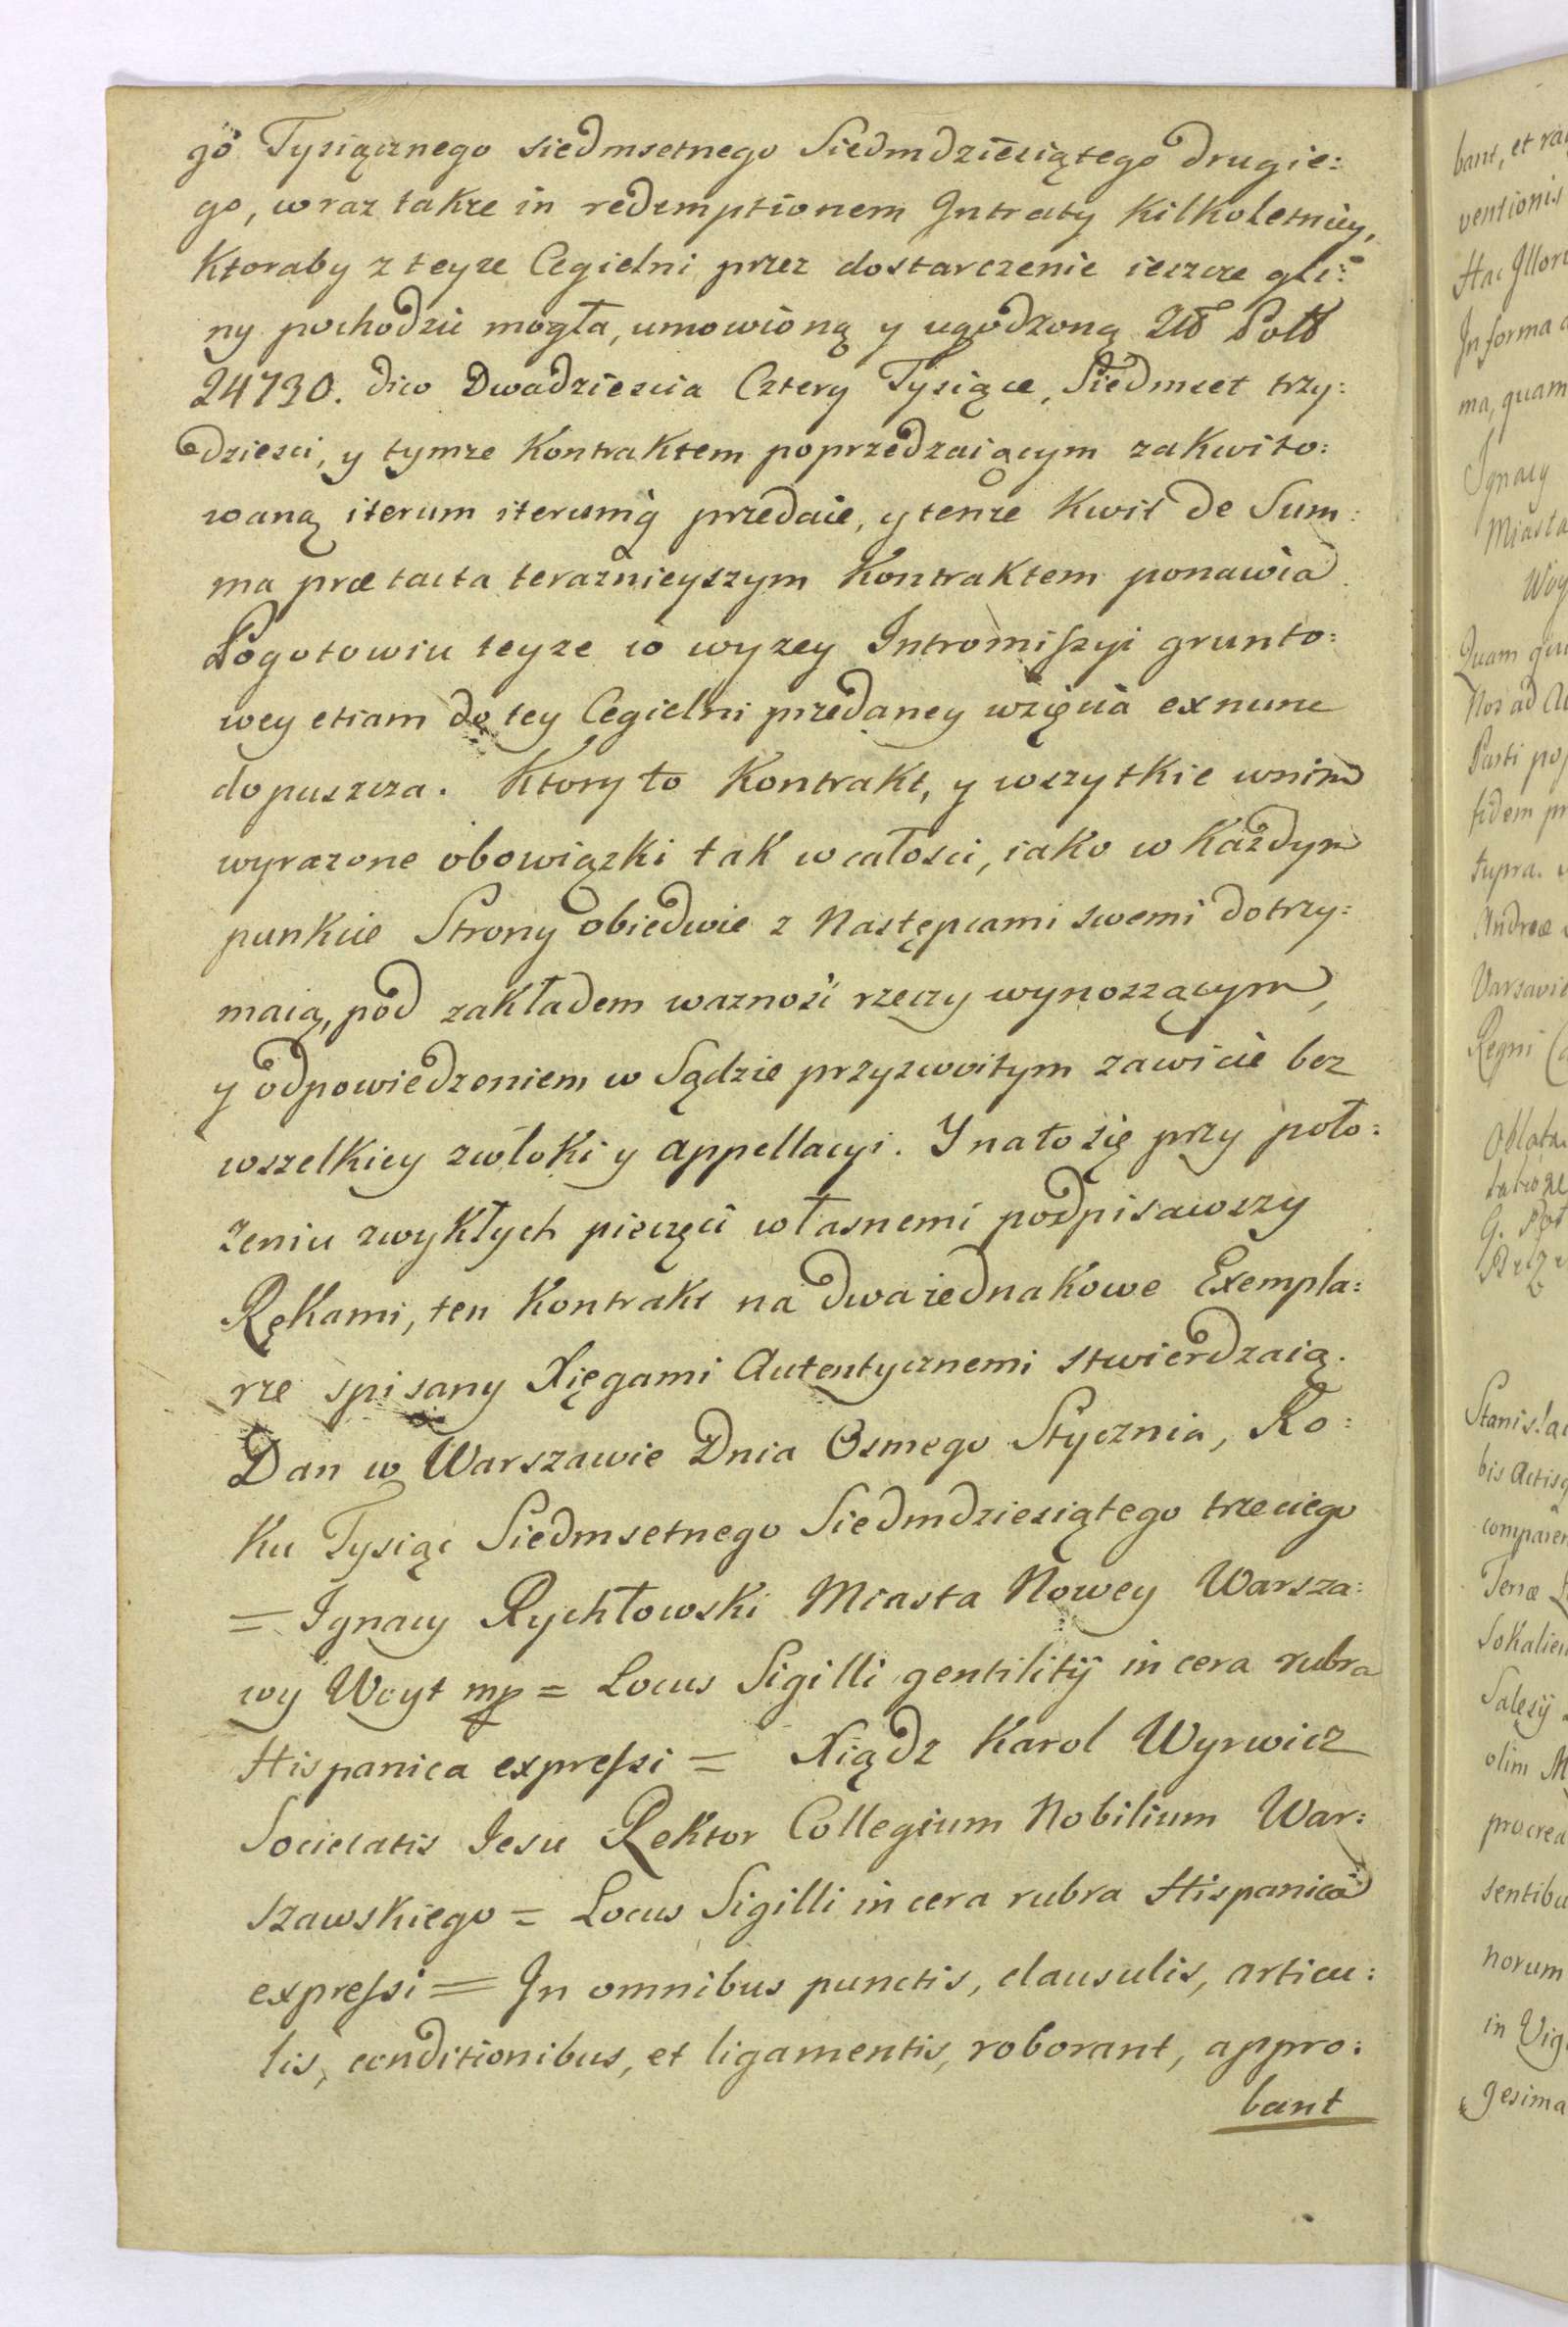 go Tysiącznego siedmsetnego Siedmdziesiątego drugie:
go, wraz takze in redemptionem Intraty kilkoletniey,
Ktoraby z teyze Cegielni przez dostarczenie ieszcze gli:
ny pochodzić mogła, umowioną y ugodzoną
24730. dico Dwadziescia Cztery Tysiące, Siedmset trzy:
dziesci, y tymze Kontraktem poprzedzaiącym zakwito:
waną iterum iterumq́ przedaie, y tenze Kwit de Sum:
ma prætacta teraznieyszym Kontraktem ponawia.
Pogotowiu teyze io wyzey Intromiſsyi grunto:
wey etiam do tey Cegielni przedaney wzięcia exnunc
dopuszcza. Ktory to Kontrakt, y wszytkie wnim
wyrazone obowiązki tak wcałosci, iako w Kazdym
punkcie Strony obiedwie z Następcami swemi dotrzy:
maią, pod zakładem waznosi rzeczy wynoszącym,
y odpowiedzeniem w Sądzie przyzwoitym zawicie bez
wszelkiey zwłoki y appellacyi. Y na to się przy poło:
żeniu zwykłych pieczęci własnemi podpisawszy
Rękami, ten Kontrakt na dwa iednakowe Exempla:
rze spisany Xięgami Autentycznemi stwierdzaią.
Dan w Warszawie Dnia Osmego Stycznia, Ro:
ku Tysiąc Siedmsetnego Siedmdziesiątego trzeciego
= Ignacy Rychłowski Miasta Nowey Warsza:
wy Woyt mp = Locus Sigilli gentilitij in cera rubra
Hispanica expreſsi = Xiądz Karol Wyrwicz
Societatis Iesu Rektor Collegium Nobilium War:
szawskiego = Locus Sigilli in cera rubra Hispanica
expreſsi = In omnibus punctis, clausulis, articu:
lis, conditionibus, et ligamentis, roborant, appro:
bant
bant, et
ventionis
Hac
In forma
ma, quam
Ignacy
Miasta
Quam
Nos ad
Parti
fidem
supra.
Andreæ
Varsavie
Regni
Oblata
Stanisla
bis Actis
comparen
Terræ
Sokalien
Salesij
olim M
procrea
sentibu
norum
in Vig
gesima